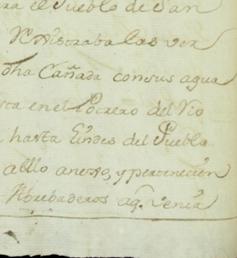 el Pueblo de San
las ver
dha Cañada con sus agua
en el Potrero del Rio
hasta Lindes del Pueblo
anexo, y pertenecien
Abrebaderos aq.e venia